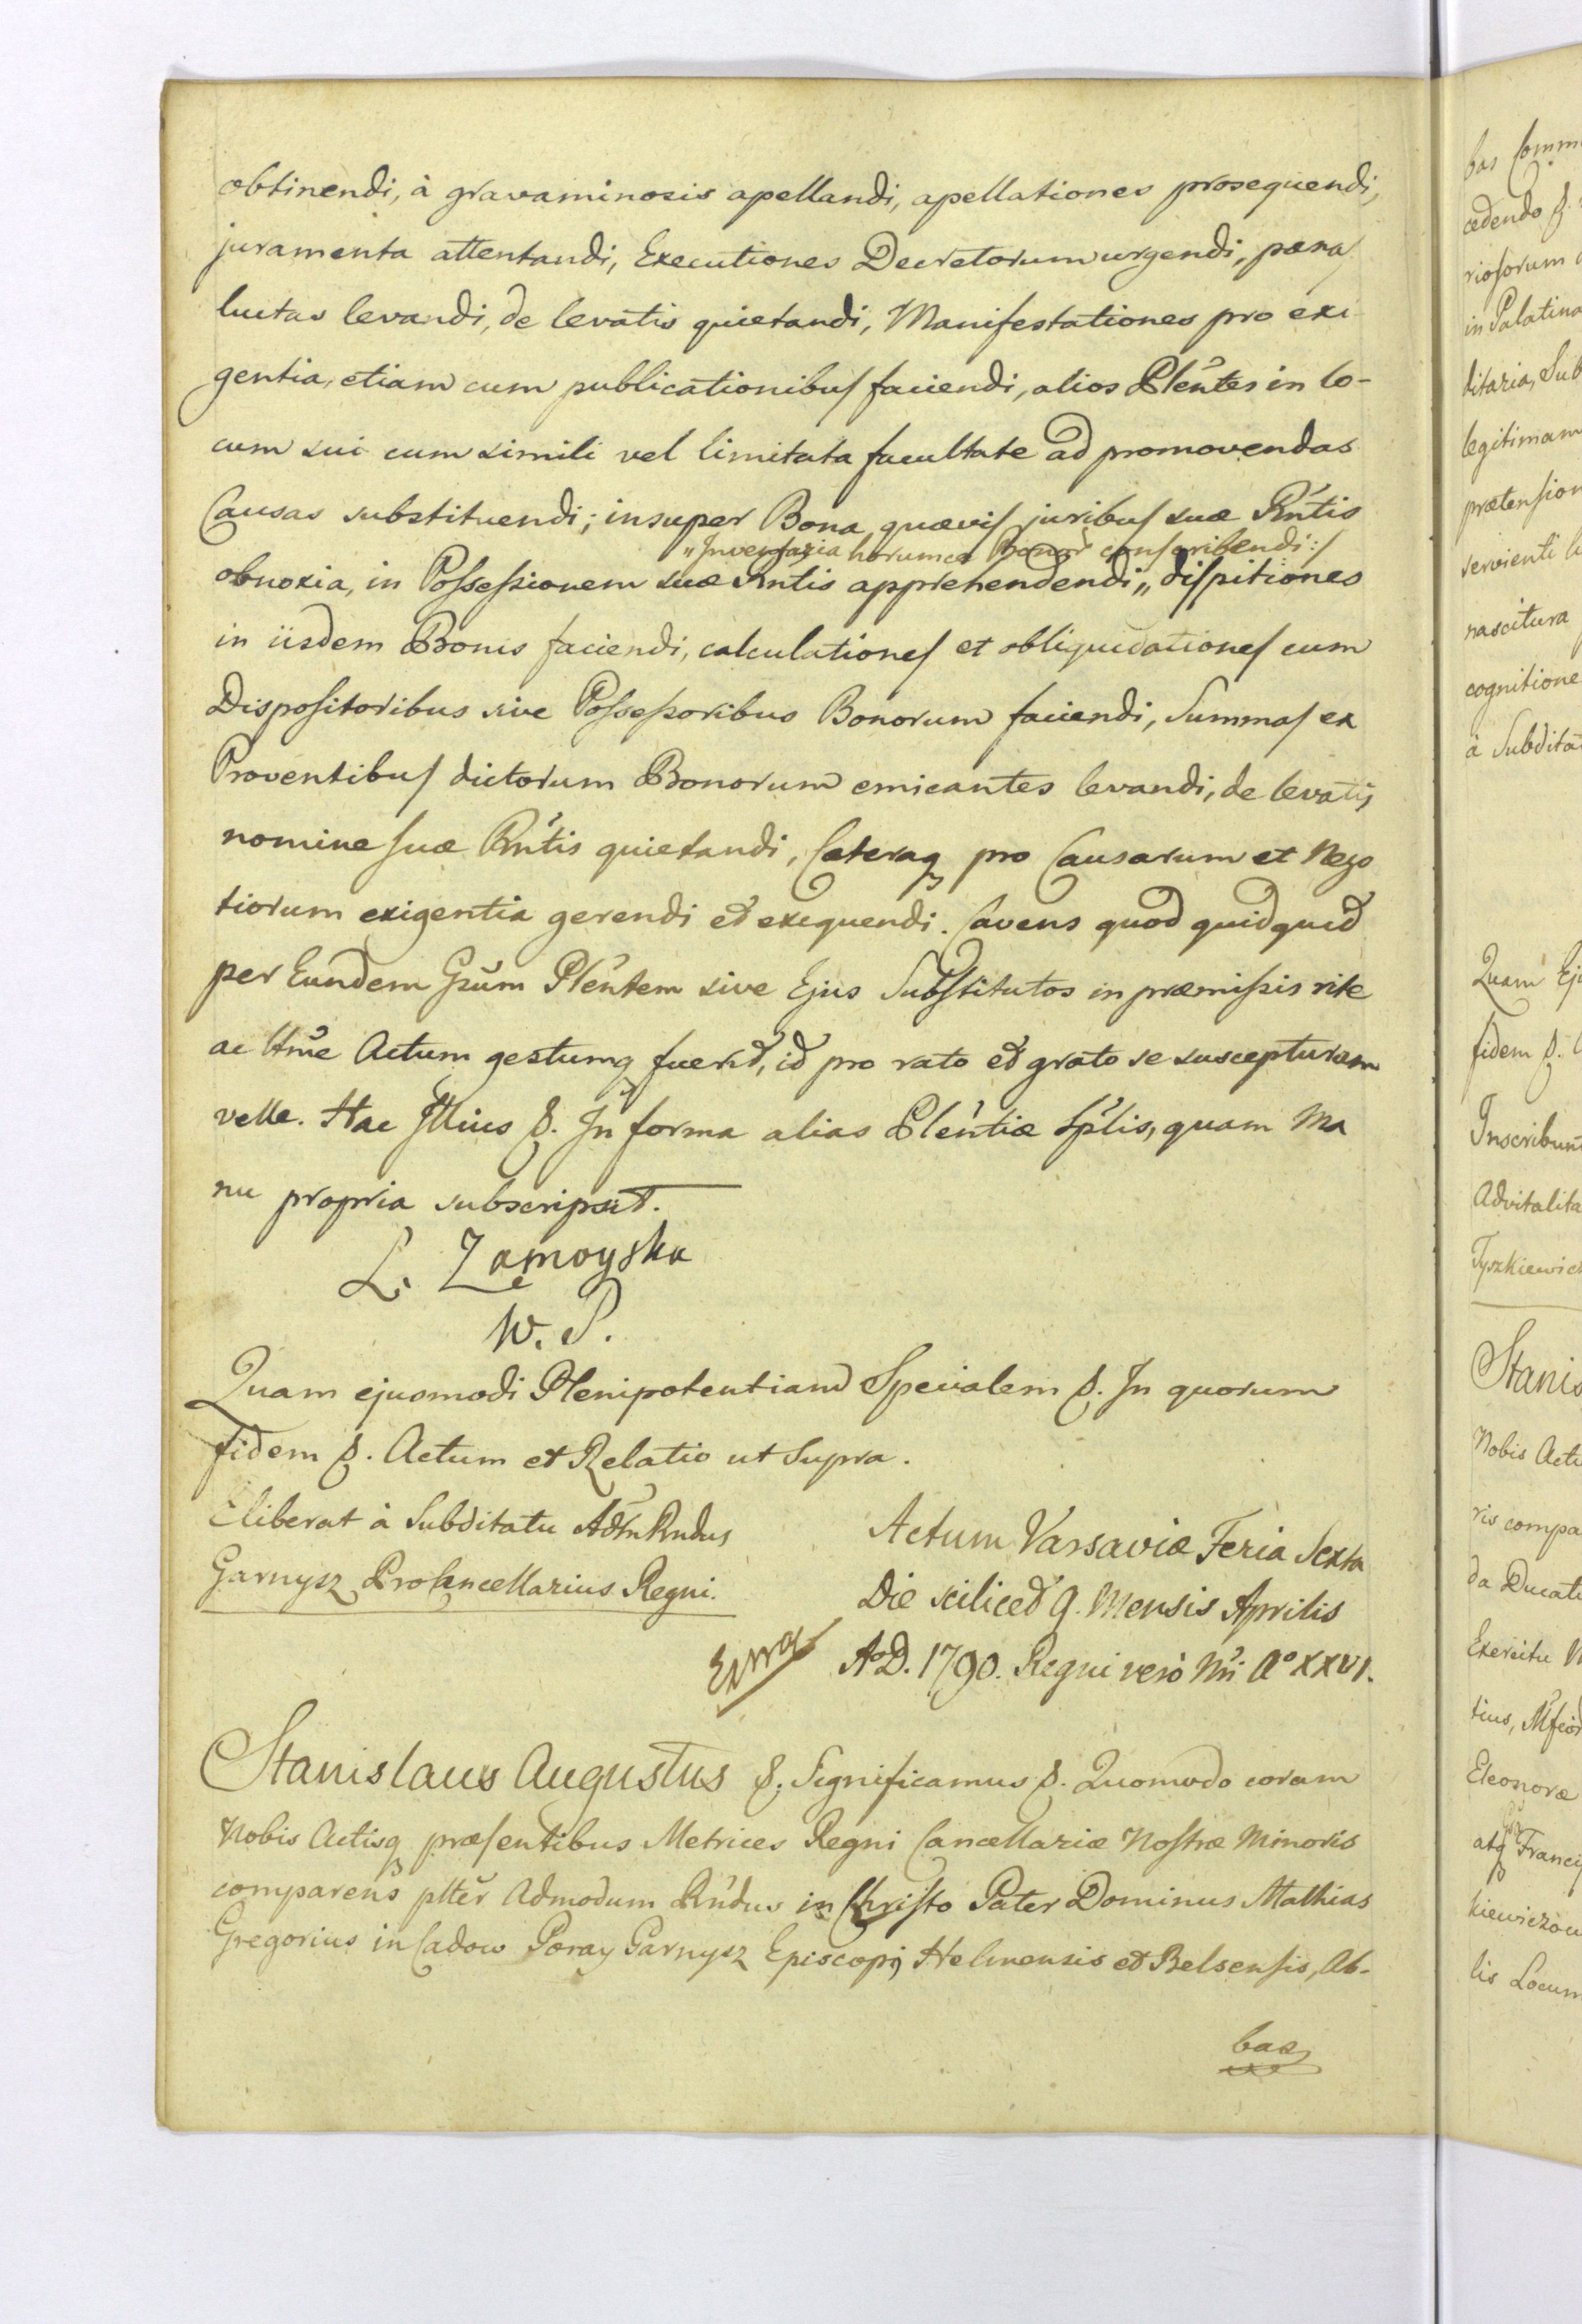 obtinendi, à gravaminosis apellandi, apellationes prosequendi,
juramenta attentandi, Executiones Decretorum urgendi, pœna
luitas levandi, de levatis quietandi, Manifestationes pro exi-
gentia, etiam cum publicationibus faciendi, alios Plen̄tes in lo-
cum sui cum simili vel limitata facultate ad promovendas
Causas substituendi; insuper Bona quævis juribus suæ Rn̄tis
„Inventaria horumce Bonor̄ conscribendi:/
obnoxia, in Possessionem suæ Rntis apprehendendi „ dispitiones
in iisdem Bonis faciendi, calculationes et obliquidationes cum
Dispositoribus sive Possessoribus Bonorum faciendi, Summas ex
Proventibus dictorum Bonorum emicantes levandi, de levatis
nomine suæ Rn̄tis quietandi, Cæteraq pro Causarum et Nego
tiorum exigentia gerendi et exequendi. Cavens quod quidquid
per Eundem Gsum Plen̄tem sive Ejus Substitutos in præmissis rite
ac ltm̄e Actum gestumq fuerit, id pro rato et grato se suscepturam
velle. Hac Illius &. In forma alias Plen̄tiæ Sp̄lis, quam Ma
nu propria subscripsit.
L. Zamoyska
W. P.
Quam ejusmodi Plenipotentiam Specialem &. In quorum
fidem &. Actum et Relatio ut Supra.
Eliberat à Subditatu Adm̄ Rndus
Garnysz Procancellarius Regni.
Actum Varsaviæ Feria Sexta
Die scilicet 9. Mensis Aprilis
A°D. 1790. Regni verò Nr̄i A° XXVI.
Stanislaus Augustus &. Significamus &. Quomodo coram
Nobis Actisq præsentibus Metrices Regni Cancellariæ Nostræ Minoris
comparens pltter Admodum Rn̄dus in Christo Pater Dominus Mathias
Gregorius in Cadow Poray Garnysz Episcopus Helmensis et Belsensis, Ab-
bas
bas Comm
cedendo &.
riosorum
in Palatina
ditaria, Sub
legitimam
prætension
servienti
nascitura
cognitione
à Subdita
Quam Ej
fidem &.
Inscribunt
Advitalita
Tyszkiewic
Stanis
Nobis Acti
ris compa
da Ducatu
Exercitu
tius,
Eleonoræ
atq Franci
kiewiczow
lis Locum